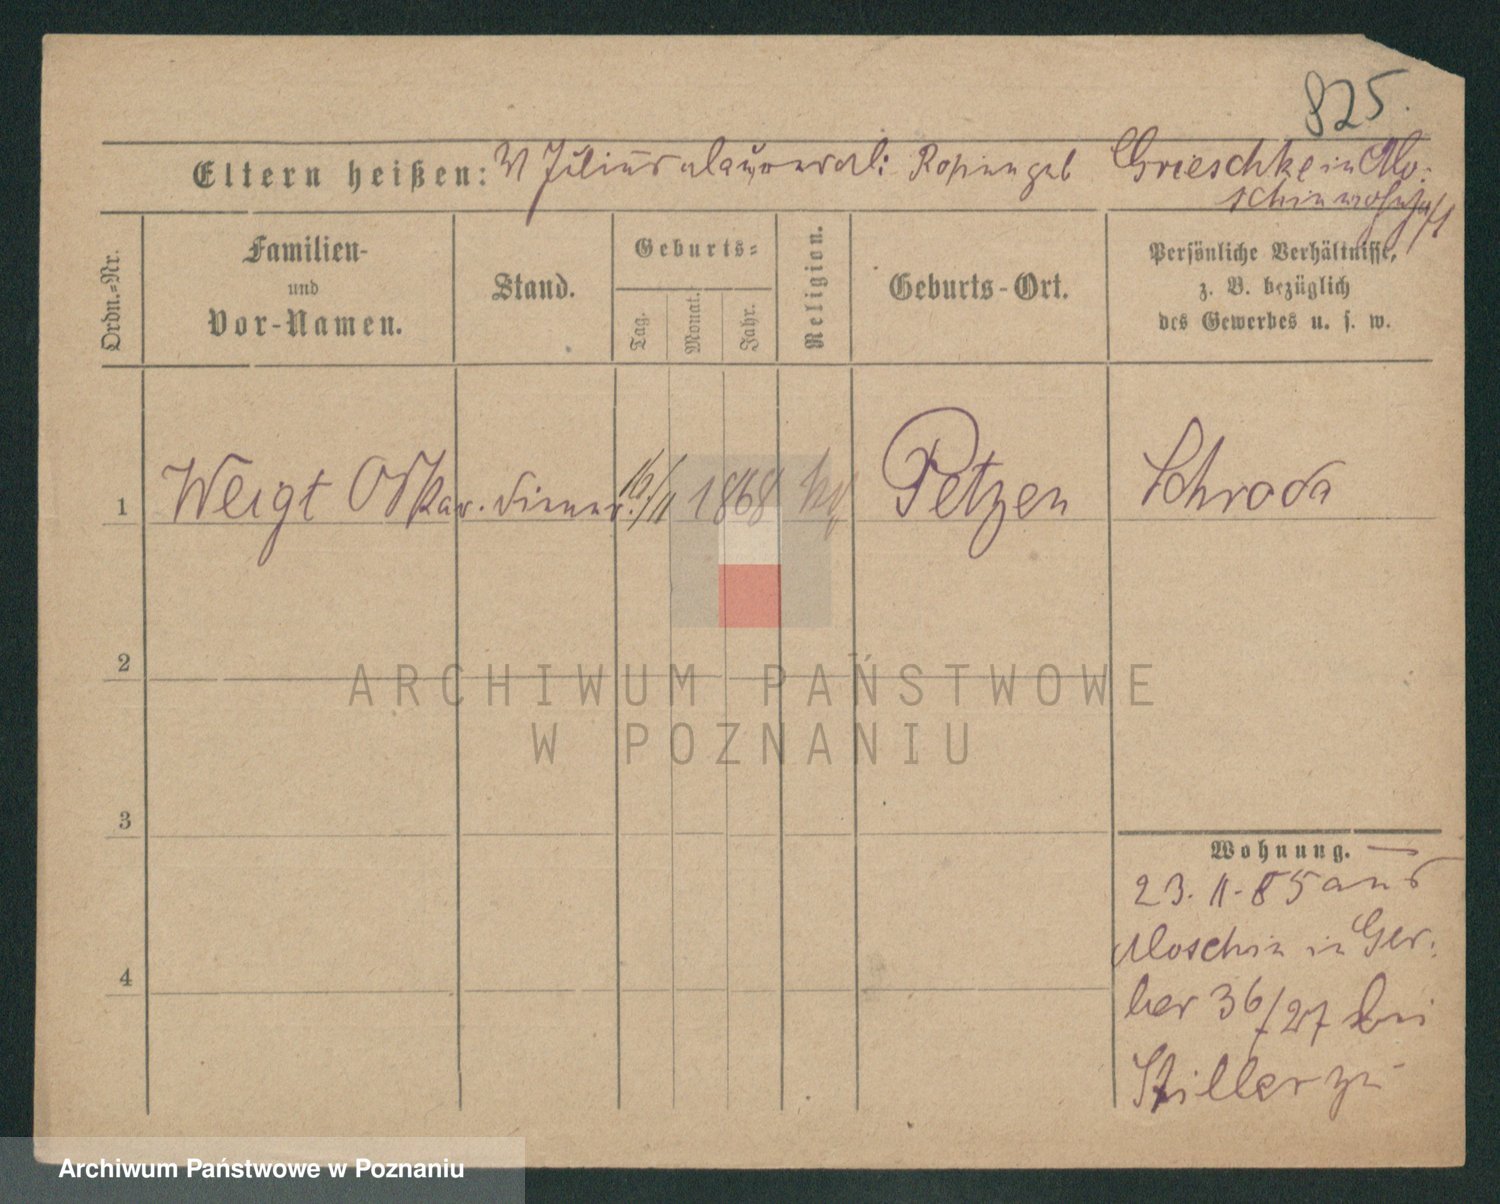 825.
Eltern heißen: W Julius Rosine geb Grieschke in Mo-
schin wohnhaft
Ordn.-Nr.
Familien-
und
Vor-Namen.
Stand.
Geburts-
Tag.
Monat.
Jahr.
Religion.
Geburts-Ort.
Persönliche Verhältnisse,
z. B. bezüglich
des Gewerbes u. s. w.
1 Weigt Oskar. Diener. 16/11 1868 Petzen Schroda
2
3
4
Wohnung.
23. 11. 85 aus
Moschin in Ger-
ber 36/27 bei
Stiller zu
ARCHIWUM PAŃSTWOWE
W POZNANIU
Archiwum Państwowe w Poznaniu